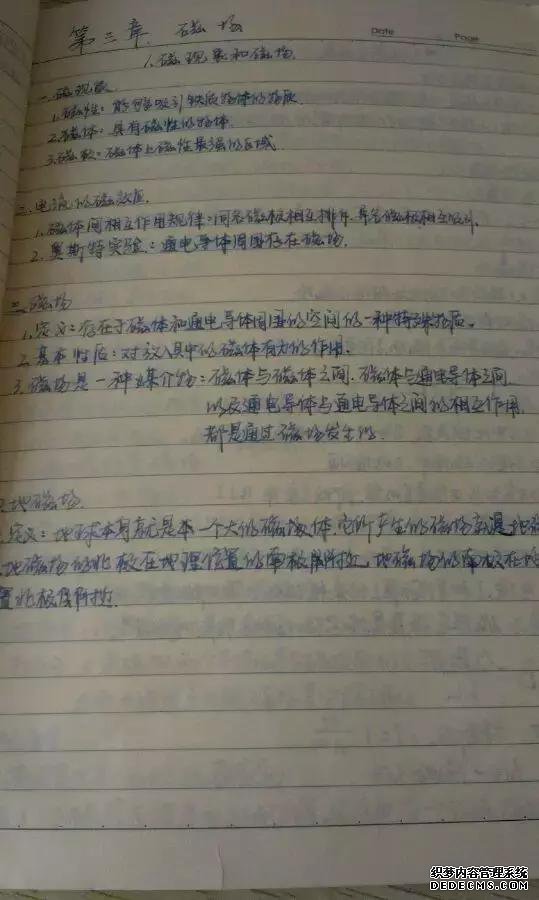 第三章 磁场
Date Page
1. 磁现象和磁场
一. 磁现象
1. 磁性: 能够吸引铁质物体的性质
2. 磁体: 具有磁性的物体
3. 磁极: 磁体上磁性最强的区域
二. 电流的磁效应
1. 磁体间相互作用规律: 同名磁极相互排斥. 异名磁极相互吸引.
2. 奥斯特实验: 通电导体周围存在磁场.
三. 磁场
1. 定义: 存在于磁体和通电导体周围的空间的一种特殊物质.
2. 基本性质: 对放入其中的磁体有力的作用.
3. 磁场是一种媒介物: 磁体与磁体之间. 磁体与通电导体之间.
以及通电导体与通电导体之间的相互作用.
都是通过磁场发生的.
地磁场
定义: 地球本身就是一个大的磁体. 它所产生的磁场就是地磁
地磁场的北极在地理位置的南极附近, 地磁场的南极在地
置北极附近.
织梦内容管理系统
DEDECMS.COM